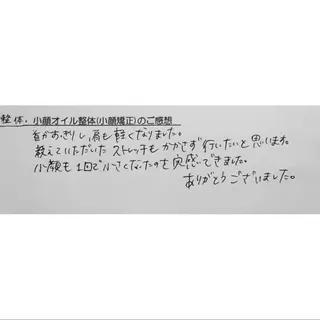 整体・小顔オイル整体(小顔矯正)のご感想
首がすっきりし、肩も軽くなりました。
教えていただいたストレッチもかかさず行いたいと思います。
小顔も1回で小さくなったのを実感できました。
ありがとうございました。